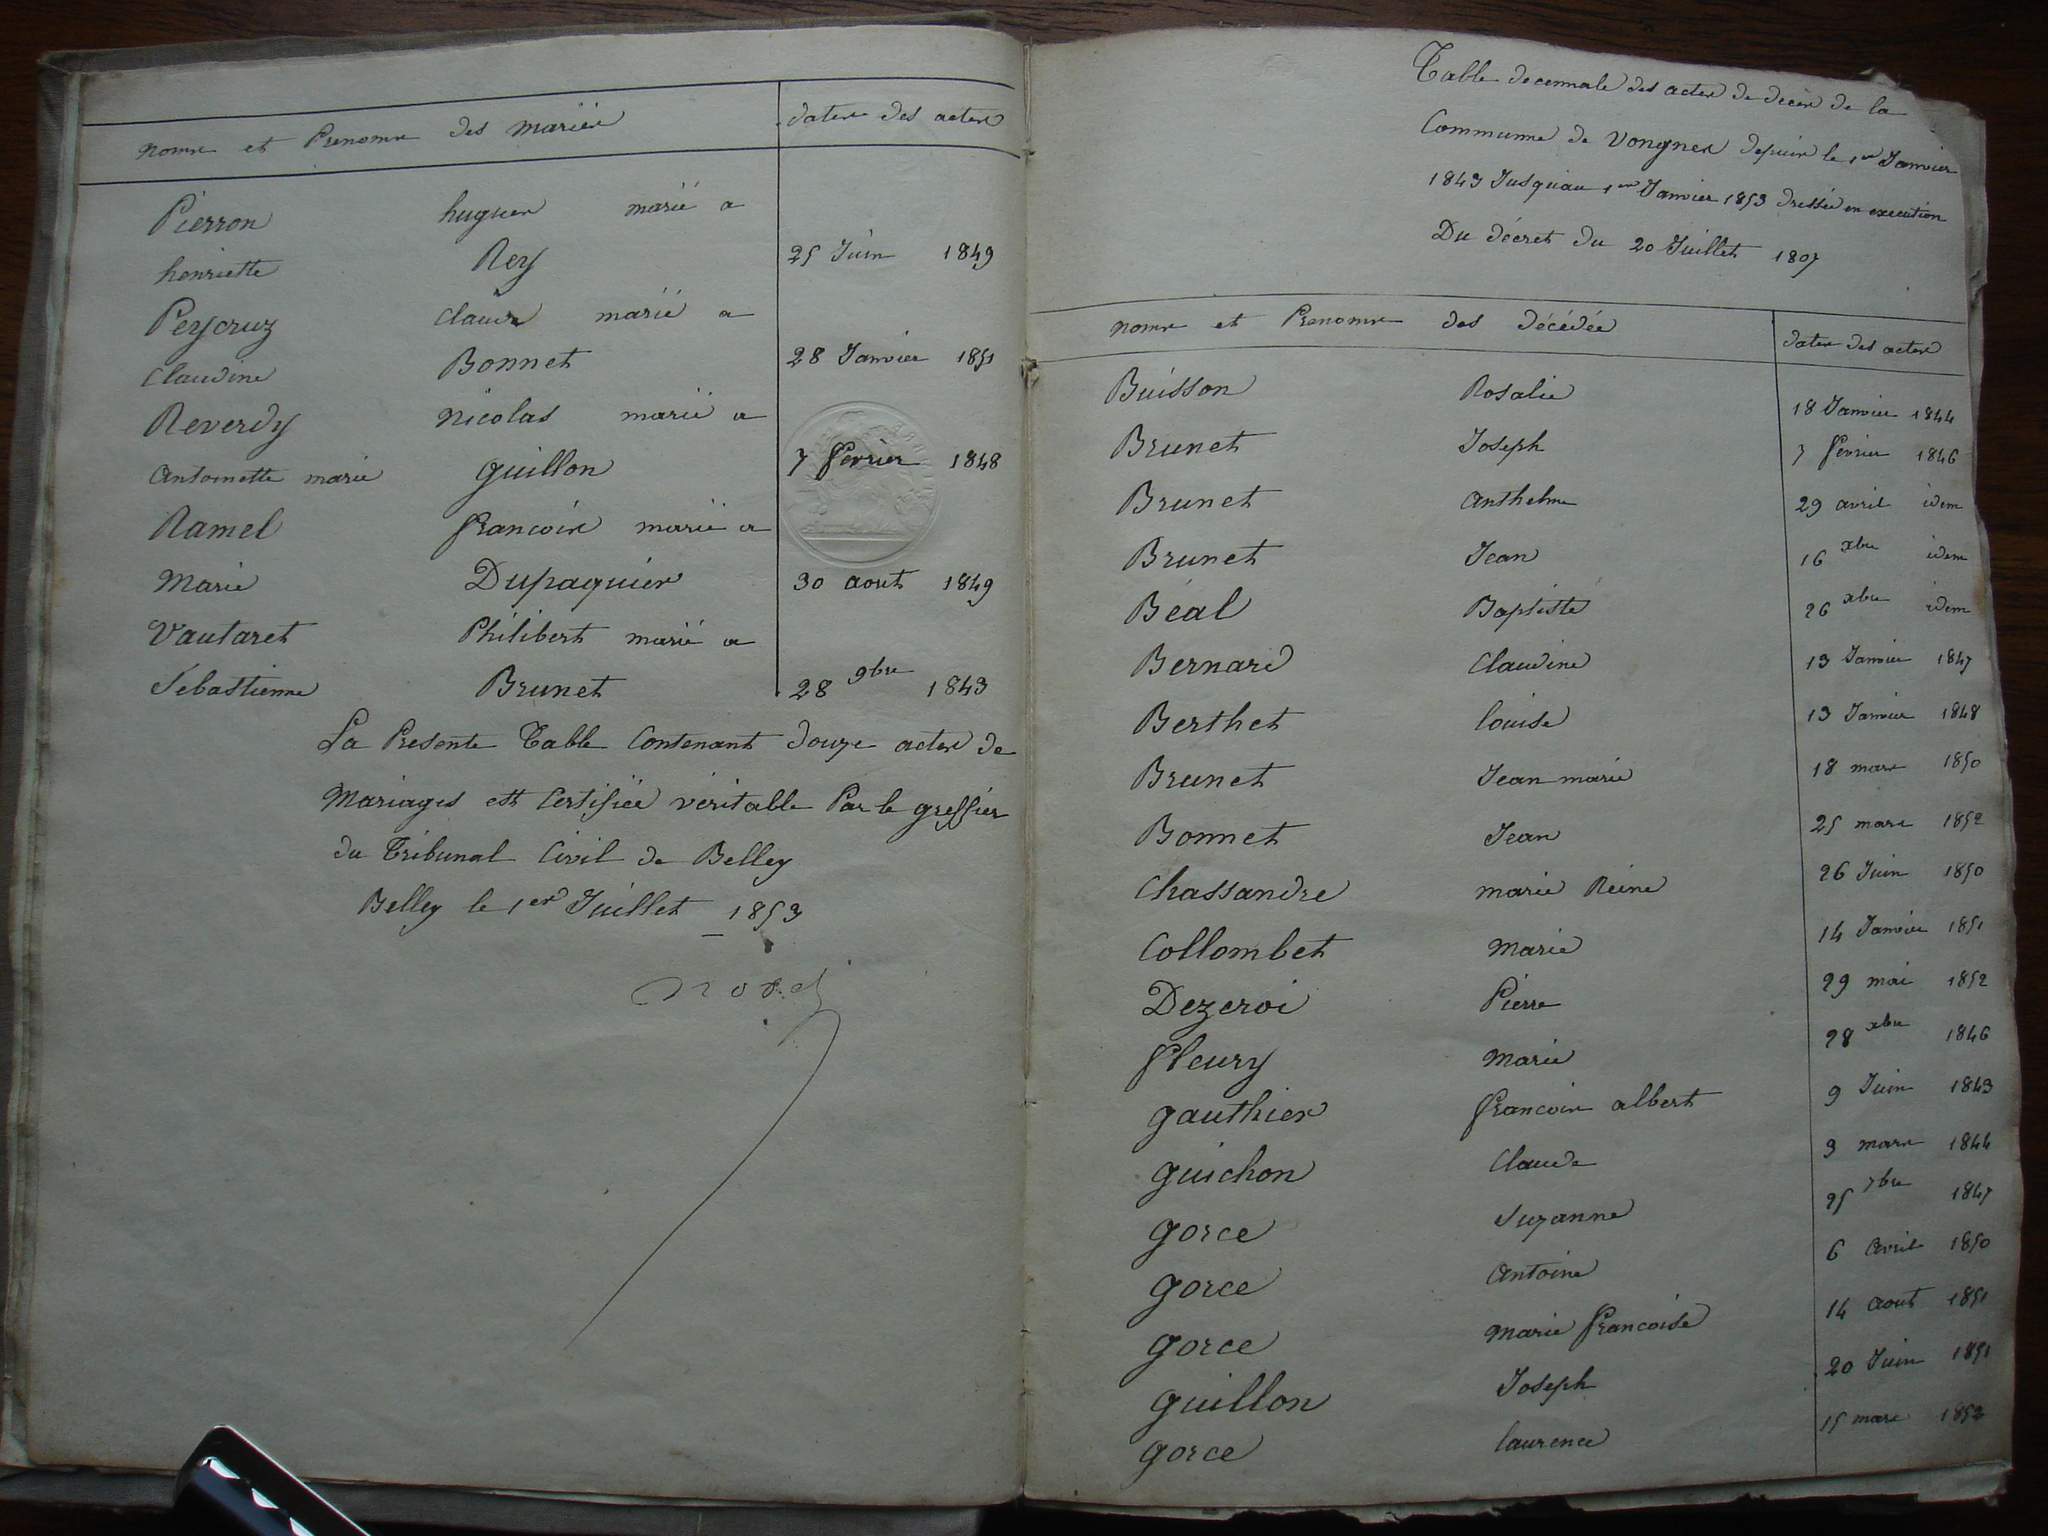 noms et Prenoms des mariés
dates des actes
Pierron hugues marié a
henriette Rey 25 Juin 1849
Peycruz Claude marié a
Claudine Bonnet 28 Janvier 1851
Reverdy nicolas marié a
Antoinette marie guillon 7 février 1848
Ramel francois marié a
Marie Dupaquier 30 aout 1849
Vautaret Philibert marié a
Sebastienne Brunet 28 9bre 1843
La Presente Table Contenant douze actes de
Mariages est Certifiée véritable Par le greffier
du Tribunal Civil de Belley
Belley le 1er Juillet 1853
Table decennale des actes de deces de la
Commune de Vongnes depuis le 1er Janvier
1843 Jusqu'au 1er Janvier 1853 dressée en execution
Du décret du 20 Juillet 1807
noms et Prenoms des décédés
dates des actes
Buisson Rosalie 18 Janvier 1844
Brunet Joseph 7 février 1846
Brunet Anthelme 29 avril idem
Brunet Jean 16 xbre idem
Béal Baptiste 26 xbre idem
Bernard Claudine 13 Janvier 1847
Berthet louise 13 Janvier 1848
Brunet Jean marie 18 mars 1850
Bonnet Jean 25 mars 1852
Chassandre marie Reine 26 Juin 1850
Collombet Marie 14 Janvier 1851
Dezeroi Pierre 29 mai 1852
fleury Marie 28 xbre 1846
gauthier francois albert 9 Juin 1843
guichon Claude 3 mars 1844
gorce Suzanne 25 7bre 1847
gorce Antoine 6 Avril 1850
gorce Marie francoise 14 aout 1851
guillon Joseph 20 Juin 1851
gorce laurence 15 mars 1852